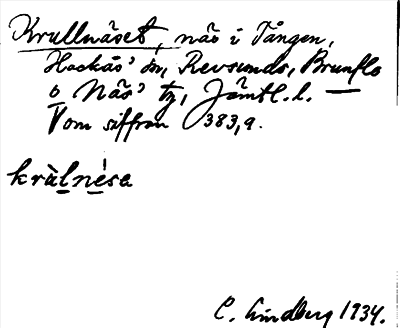 Krullnäset, näs i Tången,
Hackås' sn, Revsunds, Brunflo
o Näs' tg, Jämtl. l.
Vom siffran 383,9.
kràlnése
C. Lindberg 1934.